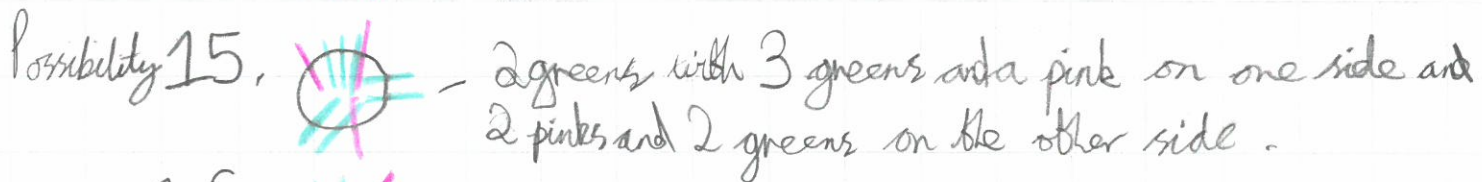 Possibility 15. - 2 greens with 3 greens and a pink on one side and
2 pinks and 2 greens on the other side.